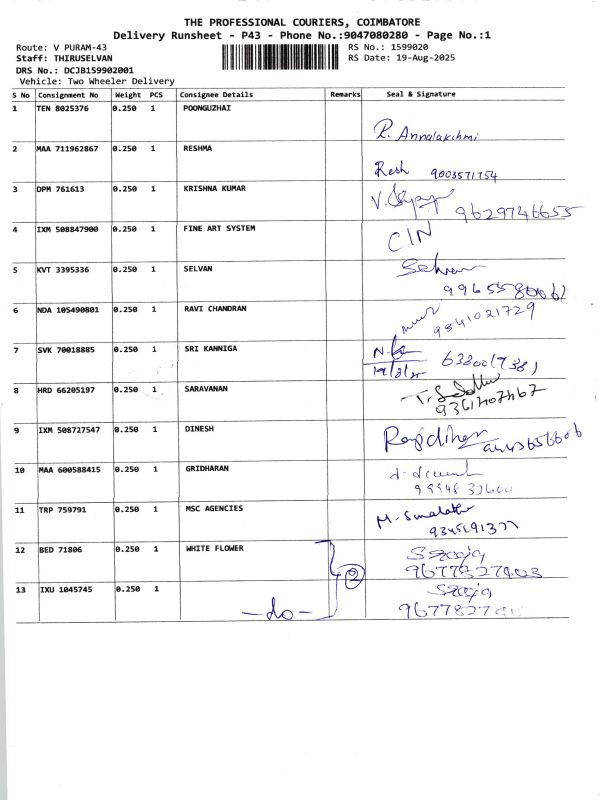 THE PROFESSIONAL COURIERS, COIMBATORE
Delivery Runsheet - P43 - Phone No.:9047080280 - Page No.:1
Route: V PURAM-43 RS No.: 1599020
Staff: THIRUSELVAN RS Date: 19-Aug-2025
DRS No.: DCJB159902001
Vehicle: Two Wheeler Delivery
S No Consignment No Weight PCS Consignee Details Remarks Seal & Signature
1 TEN 8025376 0.250 1 POONGUZHAI
R. Annalakshmi
2 MAA 711962867 0.250 1 RESHMA
Resh 9003571754
3 DPM 761613 0.250 1 KRISHNA KUMAR
9629746655
4 IXM 508847900 0.250 1 FINE ART SYSTEM
CIN
5 KVT 3395336 0.250 1 SELVAN
Selvan
6 NDA 105490801 0.250 1 RAVI CHANDRAN
9841021729
7 SVK 70018885 0.250 1 SRI KANNIGA
19/8/25
8 HRD 66205197 0.250 1 SARAVANAN
9361707467
9 IXM 508727547 0.250 1 DINESH
10 MAA 600588415 0.250 1 GRIDHARAN
11 TRP 759791 0.250 1 MSC AGENCIES
M. Sumalatha
12 BED 71806 0.250 1 WHITE FLOWER
Saroja
9677827403
2
13 IXU 1045745 0.250 1
Saroja
-do-